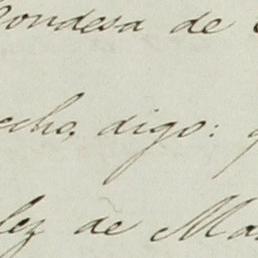 Condesa de
echo, digo:
lez de Ma